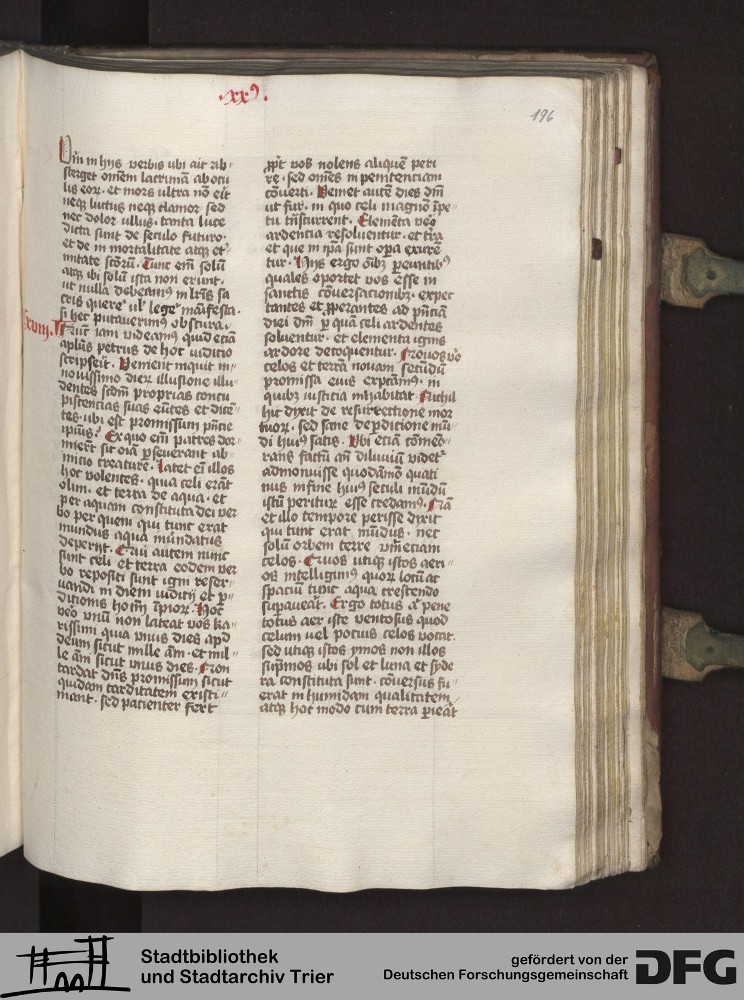 ·xxꝰ·
196
Vm in hijs verbis ubi ait ab-
sterget omem lacrimā ab ocu
lis eoꝝ. et mors ultra nō eit
neqꝫ luctus neqꝫ clamor sed
nec dolor ullus. tanta luce
dicta sunt de seculo futuro.
et de in mortalitate atqꝫ et
nitate scōrū. Tunc em̄ solū
atqꝫ ibi solū ista non erunt.
ut nulla debeamꝰ in lr̄is sa
cris querere ul legere māifesta.
si hec putauerimꝰ obscura.
xviij. Nunc iam videamꝰ quid eciā
apl̄us petrus de hoc iudicio
scripserit. Venient inquit in
nouissimo dieꝝ illusione illu
dentes scdm̄ proprias concu
piscencias suas eūtes et dicē-
tes. ubi est promissum pn̄cie
ipiꝰ. Ex quo em̄ patres dor
miert̄ sic oīa ꝑseuerant ab
inicio creature. Latet em̄ illos
hoc volentes. quia celi erāt
olim. et terra de aqua. et
per aquam constituta dei ver
bo per quem qui tunc erat
mundus aqua inūdatus
deperijt. Qui autem nunc
sunt celi et terra eodem ver
bo repositi sunt igni reser-
uandi in diem iudicij et ꝑ-
dicionis hoīm īpioꝝ. Hoc
vero vnū non lateat vos ka-
rissimi quia vnus dies apd
deum sicut mille ām. et mil-
le ām sicut vnus dies. Non
tardat dn̄s promissum sicut
quidam tarditatem existi-
mant. sed pacienter fert
ꝓpt vos nolens aliquē peri
re. sed omēs in penitenciam
cōuerti. Veniet autē dies dm̄
ut fur. in quo celi magno īpe-
tu trāscurrent. Elementa vero
ardencia resoluentur. et tr̄a
et que in ipā sunt opa exurē
tur. Hijs ergo oībꝫ peuntibꝰ
quales oportet vos esse in
sanctis cōuersacionibꝫ. expec
tantes et ꝓperantes ad pn̄ciā
diei dm̄ ꝑ quā celi ardentes
soluentur. et elementa ignis
ardore decoquentur. Nouos vo
celos et terrā nouam secūdū
promissa eius exptamꝰ. in
quibꝫ iusticia inhabitat. Nichil
hic dixit de resurrectione mor
tuoꝝ. sed sane de perdicione mū-
di huiꝰ satis. Vbi eciā cōmēo-
rans factū añ diluuiū videt
admonuisse quodāmō quati
nus in fine huiꝰ seculi mūdū
istū periturū esse credamꝰ. Nā
et illo tempore perisse dixit
qui tunc erat mūdus. nec
solū orbem terre vm̄eciam
celos. Quos utiqꝫ istos aeri-
os intelligimꝰ quoꝝ locū at
spaciū tunc aqua crescendo
supauerat. Ergo totus aut pene
totus aer iste ventosus quod
celum uel pocius celos vocat.
sed utiqꝫ istos ymos non illos
supīmos ubi sol et luna et syde
ra constituta sunt. cōuersus fu-
erat in humidam qualitatem
atqꝫ hoc modo cum terra ꝑierat
Stadtbibliothek
und Stadtarchiv Trier
gefördert von der
Deutschen Forschungsgemeinschaft
DFG